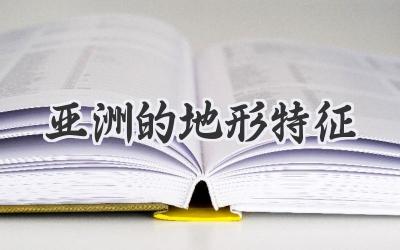 亚洲的地形特征